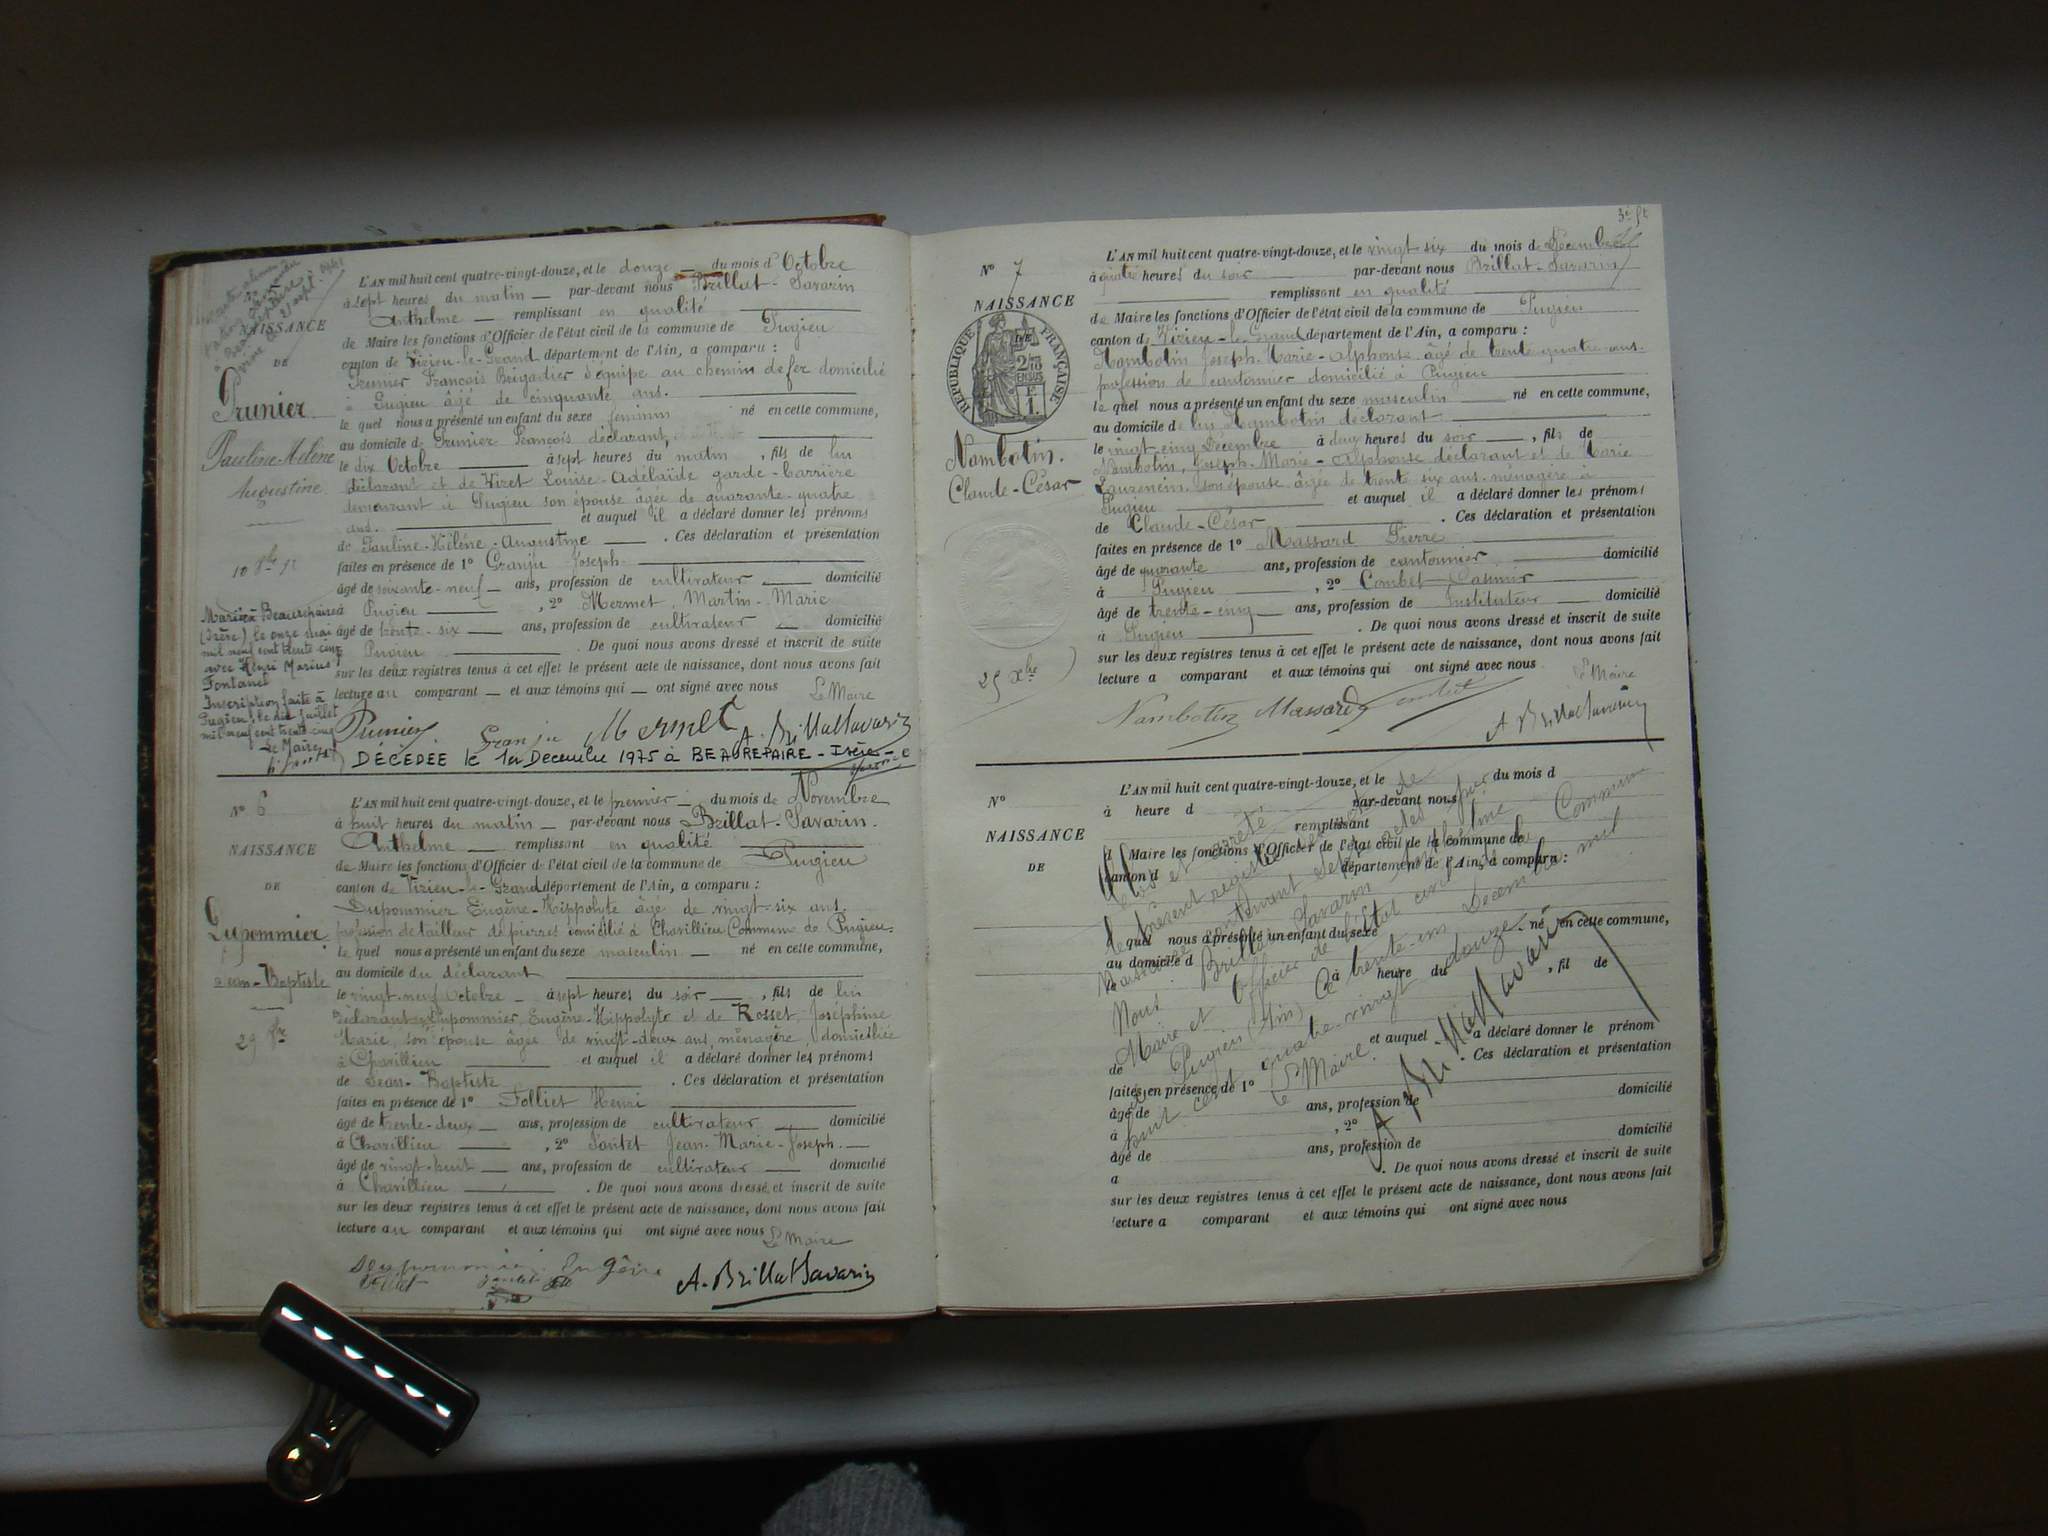 NAISSANCE
DE
Prunier
Pauline-Hélène
Augustine
10 8bre 92
Mariée à Beaurepaire
(Isère), le onze mai
mil neuf cent trente-cinq
avec Henri Marius
Fontanel
Inscription faite à
Pugieu, le dix juillet
mil neuf cent trente-cinq
Le Maire,
L'AN mil huit cent quatre-vingt-douze, et le douze du mois d'Octobre
à sept heures du matin par-devant nous Brillat-Savarin
Anthelme remplissant en qualité
de Maire les fonctions d'Officier de l'état civil de la commune de Pugieu
canton de Virieu-le-Grand département de l'Ain, a comparu :
Prunier François Brigadier d'équipe au chemin de fer domicilié
à Pugieu âgé de cinquante ans.
le quel nous a présenté un enfant du sexe féminin né en cette commune,
au domicile de Prunier François déclarant,
le dix Octobre à sept heures du matin, fils de lui
déclarant et de Viret Louise-Adélaïde garde-barrière
demeurant à Pugieu son épouse âgée de quarante-quatre
ans. et auquel il a déclaré donner les prénoms
de Pauline-Hélène-Augustine. Ces déclaration et présentation
faites en présence de 1º Granju Joseph
âgé de soixante-neuf ans, profession de cultivateur domicilié
à Pugieu, 2º Mermet Martin-Marie
âgé de trente-six ans, profession de cultivateur domicilié
à Pugieu. De quoi nous avons dressé et inscrit de suite
sur les deux registres tenus à cet effet le présent acte de naissance, dont nous avons fait
lecture au comparant et aux témoins qui ont signé avec nous Le Maire
Prunier Granju Mermet A. Brillat Savarin
DÉCÉDÉE le 1er Décembre 1975 à BEAUREPAIRE - Isère -
Nº 6
NAISSANCE
DE
Dupommier
Jean-Baptiste
29 8bre
L'AN mil huit cent quatre-vingt-douze, et le premier du mois de Novembre
à huit heures du matin par-devant nous Brillat-Savarin.
Anthelme remplissant en qualité
de Maire les fonctions d'Officier de l'état civil de la commune de Pugieu
canton de Virieu-le-Grand département de l'Ain, a comparu :
Dupommier Eugène-Hippolyte âgé de vingt-six ans.
profession de tailleur de pierres domicilié à Chavillieu Commune de Pugieu.
le quel nous a présenté un enfant du sexe masculin né en cette commune,
au domicile du déclarant
le vingt-neuf Octobre à sept heures du soir, fils de lui
déclarant Dupommier, Eugène-Hippolyte et de Rosset, Joséphine
Marie, son épouse âgée de vingt-deux ans, ménagère, domiciliée
à Chavillieu et auquel il a déclaré donner les prénoms
de Jean-Baptiste. Ces déclaration et présentation
faites en présence de 1º Folliet Henri
âgé de trente-deux ans, profession de cultivateur domicilié
à Chavillieu, 2º Pontet Jean-Marie-Joseph.
âgé de vingt-huit ans, profession de cultivateur domicilié
à Chavillieu. De quoi nous avons dressé et inscrit de suite
sur les deux registres tenus à cet effet le présent acte de naissance, dont nous avons fait
lecture au comparant et aux témoins qui ont signé avec nous Le Maire
Eugène
A. Brillat Savarin
Nº 7
NAISSANCE
RÉPUBLIQUE FRANÇAISE
Nambotin.
Claude-César
25 Xbre
L'AN mil huit cent quatre-vingt-douze, et le vingt-six du mois de Décembre
à quatre heures du soir par-devant nous Brillat-Savarin
remplissant en qualité
de Maire les fonctions d'Officier de l'état civil de la commune de Pugieu
canton de Virieu-le-Grand département de l'Ain, a comparu :
Nambotin Joseph-Marie-Alphonse âgé de trente-quatre ans.
profession de cantonnier domicilié à Pugieu
le quel nous a présenté un enfant du sexe masculin né en cette commune,
au domicile de lui Nambotin déclarant
le vingt-cinq Décembre à deux heures du soir, fils de
Nambotin, Joseph-Marie-Alphonse déclarant et de Marie
son épouse âgée de trente six ans ménagère à
Pugieu et auquel il a déclaré donner les prénoms
de Claude-César. Ces déclaration et présentation
faites en présence de 1º Massard Pierre
âgé de quarante ans, profession de cantonnier domicilié
à Pugieu, 2º Combet Casimir
âgé de trente-cinq ans, profession de Instituteur domicilié
à Pugieu. De quoi nous avons dressé et inscrit de suite
sur les deux registres tenus à cet effet le présent acte de naissance, dont nous avons fait
lecture a comparant et aux témoins qui ont signé avec nous Le Maire
Nambotin Massard Combet A. Brillat Savarin
Nº
NAISSANCE
DE
L'AN mil huit cent quatre-vingt-douze, et le du mois d
à heure d par-devant nous
remplissant
d Maire les fonctions d'Officier de l'état civil de la commune de
canton d département de l'Ain, a comparu :
le quel nous a présenté un enfant du sexe né en cette commune,
au domicile d
le à heure du, fil de
et auquel a déclaré donner le prénom
de. Ces déclaration et présentation
faites en présence de 1º
âgé de ans, profession de domicilié
à, 2º
âgé de ans, profession de domicilié
a. De quoi nous avons dressé et inscrit de suite
sur les deux registres tenus à cet effet le présent acte de naissance, dont nous avons fait
lecture a comparant et aux témoins qui ont signé avec nous
Clos et arrêté
le présent registre des actes de
Naissance contenant sept actes par
Nous Brillat-Savarin Anthelme
Maire et Officier de l'état civil de la Commune
de Pugieu (Ain) Ce trente-un Décembre mil
huit cent quatre-vingt douze.
Le Maire.
A. Brillat Savarin